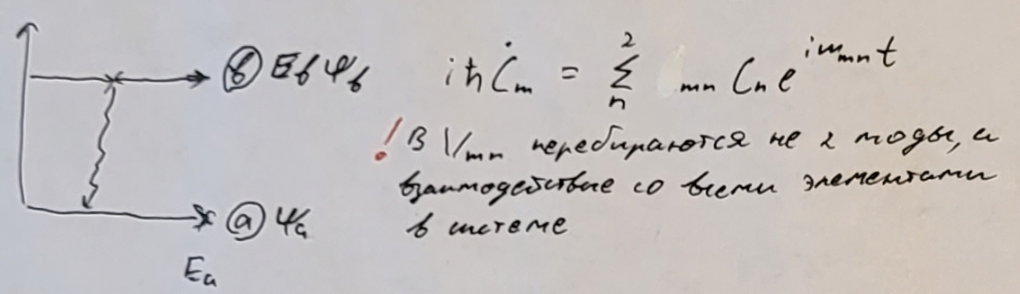 (б) E_б Ψ_б
iħĊ_m = Σ_n^2 _mn C_n e^{iω_mn t}
! В V_mn перебираются не 2 моды, а
взаимодействие со всеми элементами
в системе
(а) Ψ_а
E_а